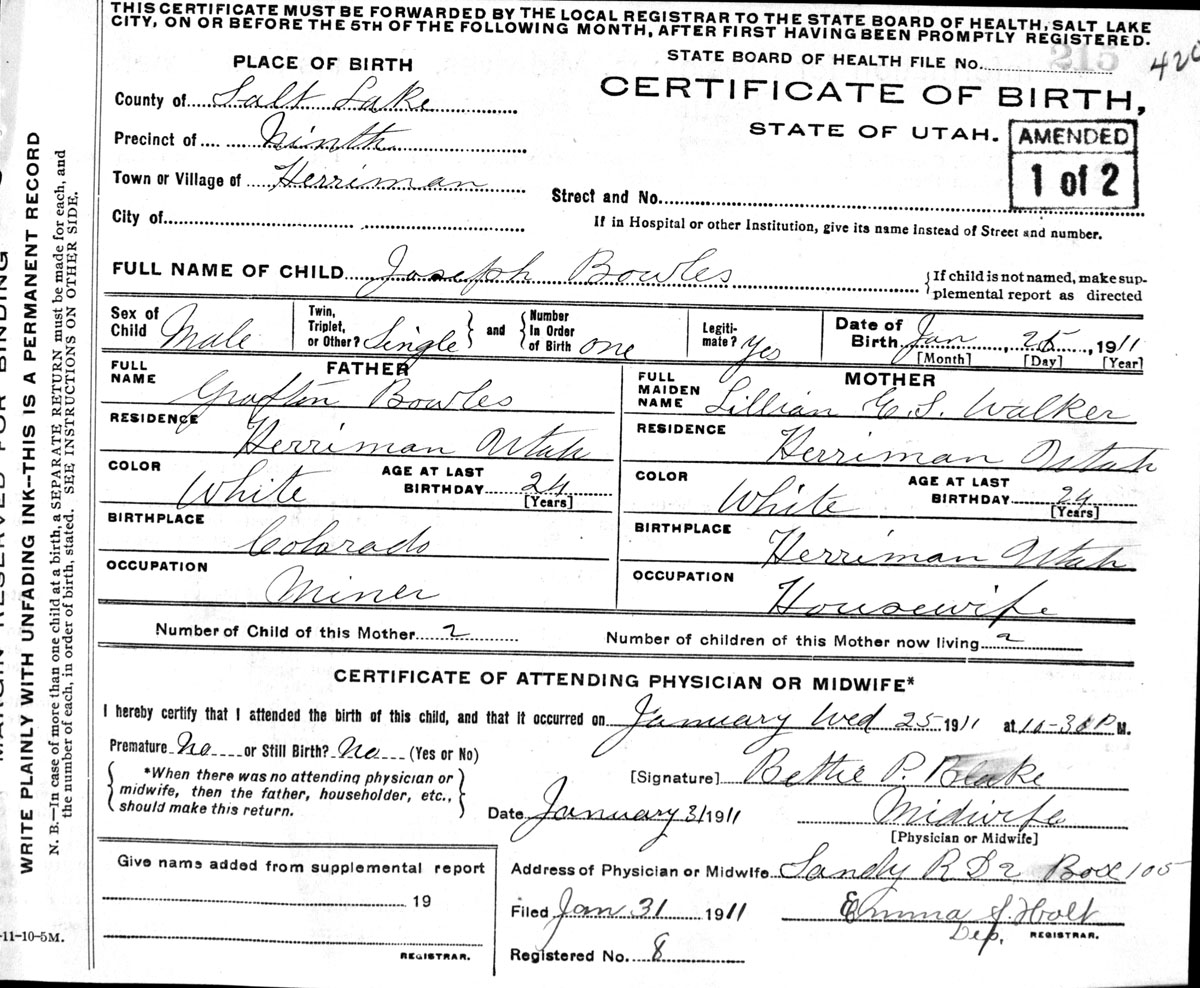 THIS CERTIFICATE MUST BE FORWARDED BY THE LOCAL REGISTRAR TO THE STATE BOARD OF HEALTH, SALT LAKE
CITY, ON OR BEFORE THE 5TH OF THE FOLLOWING MONTH, AFTER FIRST HAVING BEEN PROMPTLY REGISTERED.
STATE BOARD OF HEALTH FILE No. 215
420
PLACE OF BIRTH
CERTIFICATE OF BIRTH,
STATE OF UTAH.
AMENDED
1 of 2
County of Salt Lake
Precinct of Ninth
Town or Village of Herriman
Street and No.
City of
If in Hospital or other Institution, give its name instead of Street and number.
FULL NAME OF CHILD Joseph Bowles
{If child is not named, make sup-
plemental report as directed
Sex of Child Male
Twin, Triplet, or Other? Single } and { Number In Order of Birth one
Legiti-mate? Yes
Date of Birth Jan, 25, 1911
[Month] [Day] [Year]
FATHER
FULL NAME Grafton Bowles
RESIDENCE Herriman Utah
COLOR White AGE AT LAST BIRTHDAY 24
[Years]
BIRTHPLACE Colorado
OCCUPATION Miner
MOTHER
FULL MAIDEN NAME Lillian E. S. Walker
RESIDENCE Herriman Utah
COLOR White AGE AT LAST BIRTHDAY 24
[Years]
BIRTHPLACE Herriman Utah
OCCUPATION Housewife
Number of Child of this Mother 2 Number of children of this Mother now living 2
CERTIFICATE OF ATTENDING PHYSICIAN OR MIDWIFE*
I hereby certify that I attended the birth of this child, and that it occurred on January Wed 25 1911 at 10-30 P M.
Premature No or Still Birth? No (Yes or No)
{*When there was no attending physician or
midwife, then the father, householder, etc.,
should make this return.}
[Signature] Bettie P. Blake
Date January 31 1911 Midwife
[Physician or Midwife]
Give name added from supplemental report
19
REGISTRAR.
Address of Physician or Midwife Sandy R D 2 Box 105
Filed Jan 31 1911 Emma S. Holt
Dep. REGISTRAR.
Registered No. 8
-11-10-5M.
MARGIN RESERVED FOR BINDING
WRITE PLAINLY WITH UNFADING INK--THIS IS A PERMANENT RECORD
N. B.—In case of more than one child at a birth, a SEPARATE RETURN must be made for each, and
the number of each, in order of birth, stated. SEE INSTRUCTIONS ON OTHER SIDE.